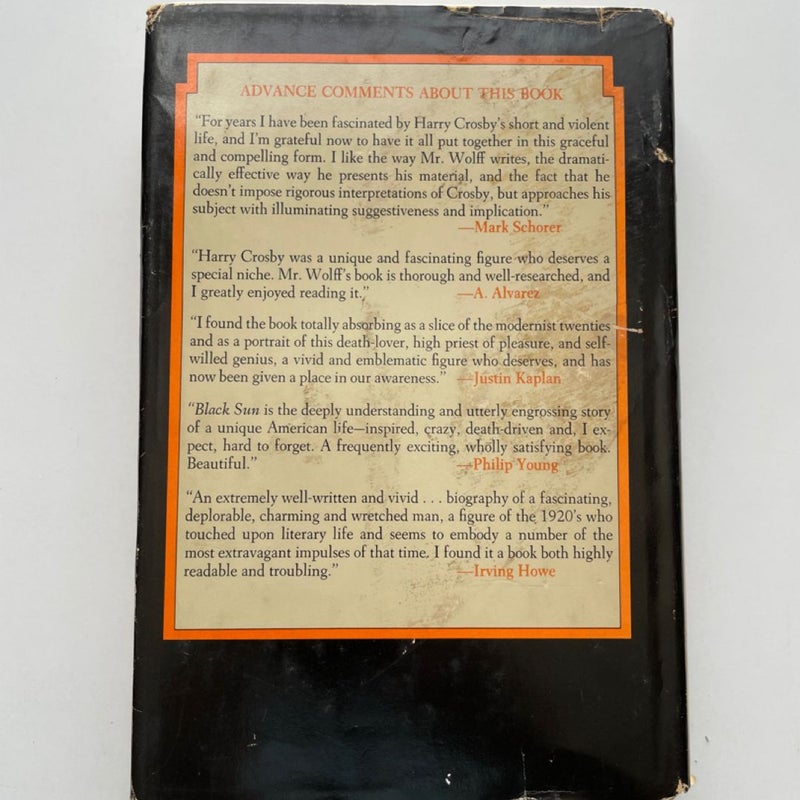 ADVANCE COMMENTS ABOUT THIS BOOK
“For years I have been fascinated by Harry Crosby’s short and violent
life, and I’m grateful now to have it all put together in this graceful
and compelling form. I like the way Mr. Wolff writes, the dramati-
cally effective way he presents his material, and the fact that he
doesn’t impose rigorous interpretations of Crosby, but approaches his
subject with illuminating suggestiveness and implication.”
—Mark Schorer
“Harry Crosby was a unique and fascinating figure who deserves a
special niche. Mr. Wolff’s book is thorough and well-researched, and
I greatly enjoyed reading it.” —A. Alvarez
“I found the book totally absorbing as a slice of the modernist twenties
and as a portrait of this death-lover, high priest of pleasure, and self-
willed genius, a vivid and emblematic figure who deserves, and has
now been given a place in our awareness.” —Justin Kaplan
“Black Sun is the deeply understanding and utterly engrossing story
of a unique American life—inspired, crazy, death-driven and, I ex-
pect, hard to forget. A frequently exciting, wholly satisfying book.
Beautiful.” —Philip Young
“An extremely well-written and vivid . . . biography of a fascinating,
deplorable, charming and wretched man, a figure of the 1920’s who
touched upon literary life and seems to embody a number of the
most extravagant impulses of that time. I found it a book both highly
readable and troubling.” —Irving Howe